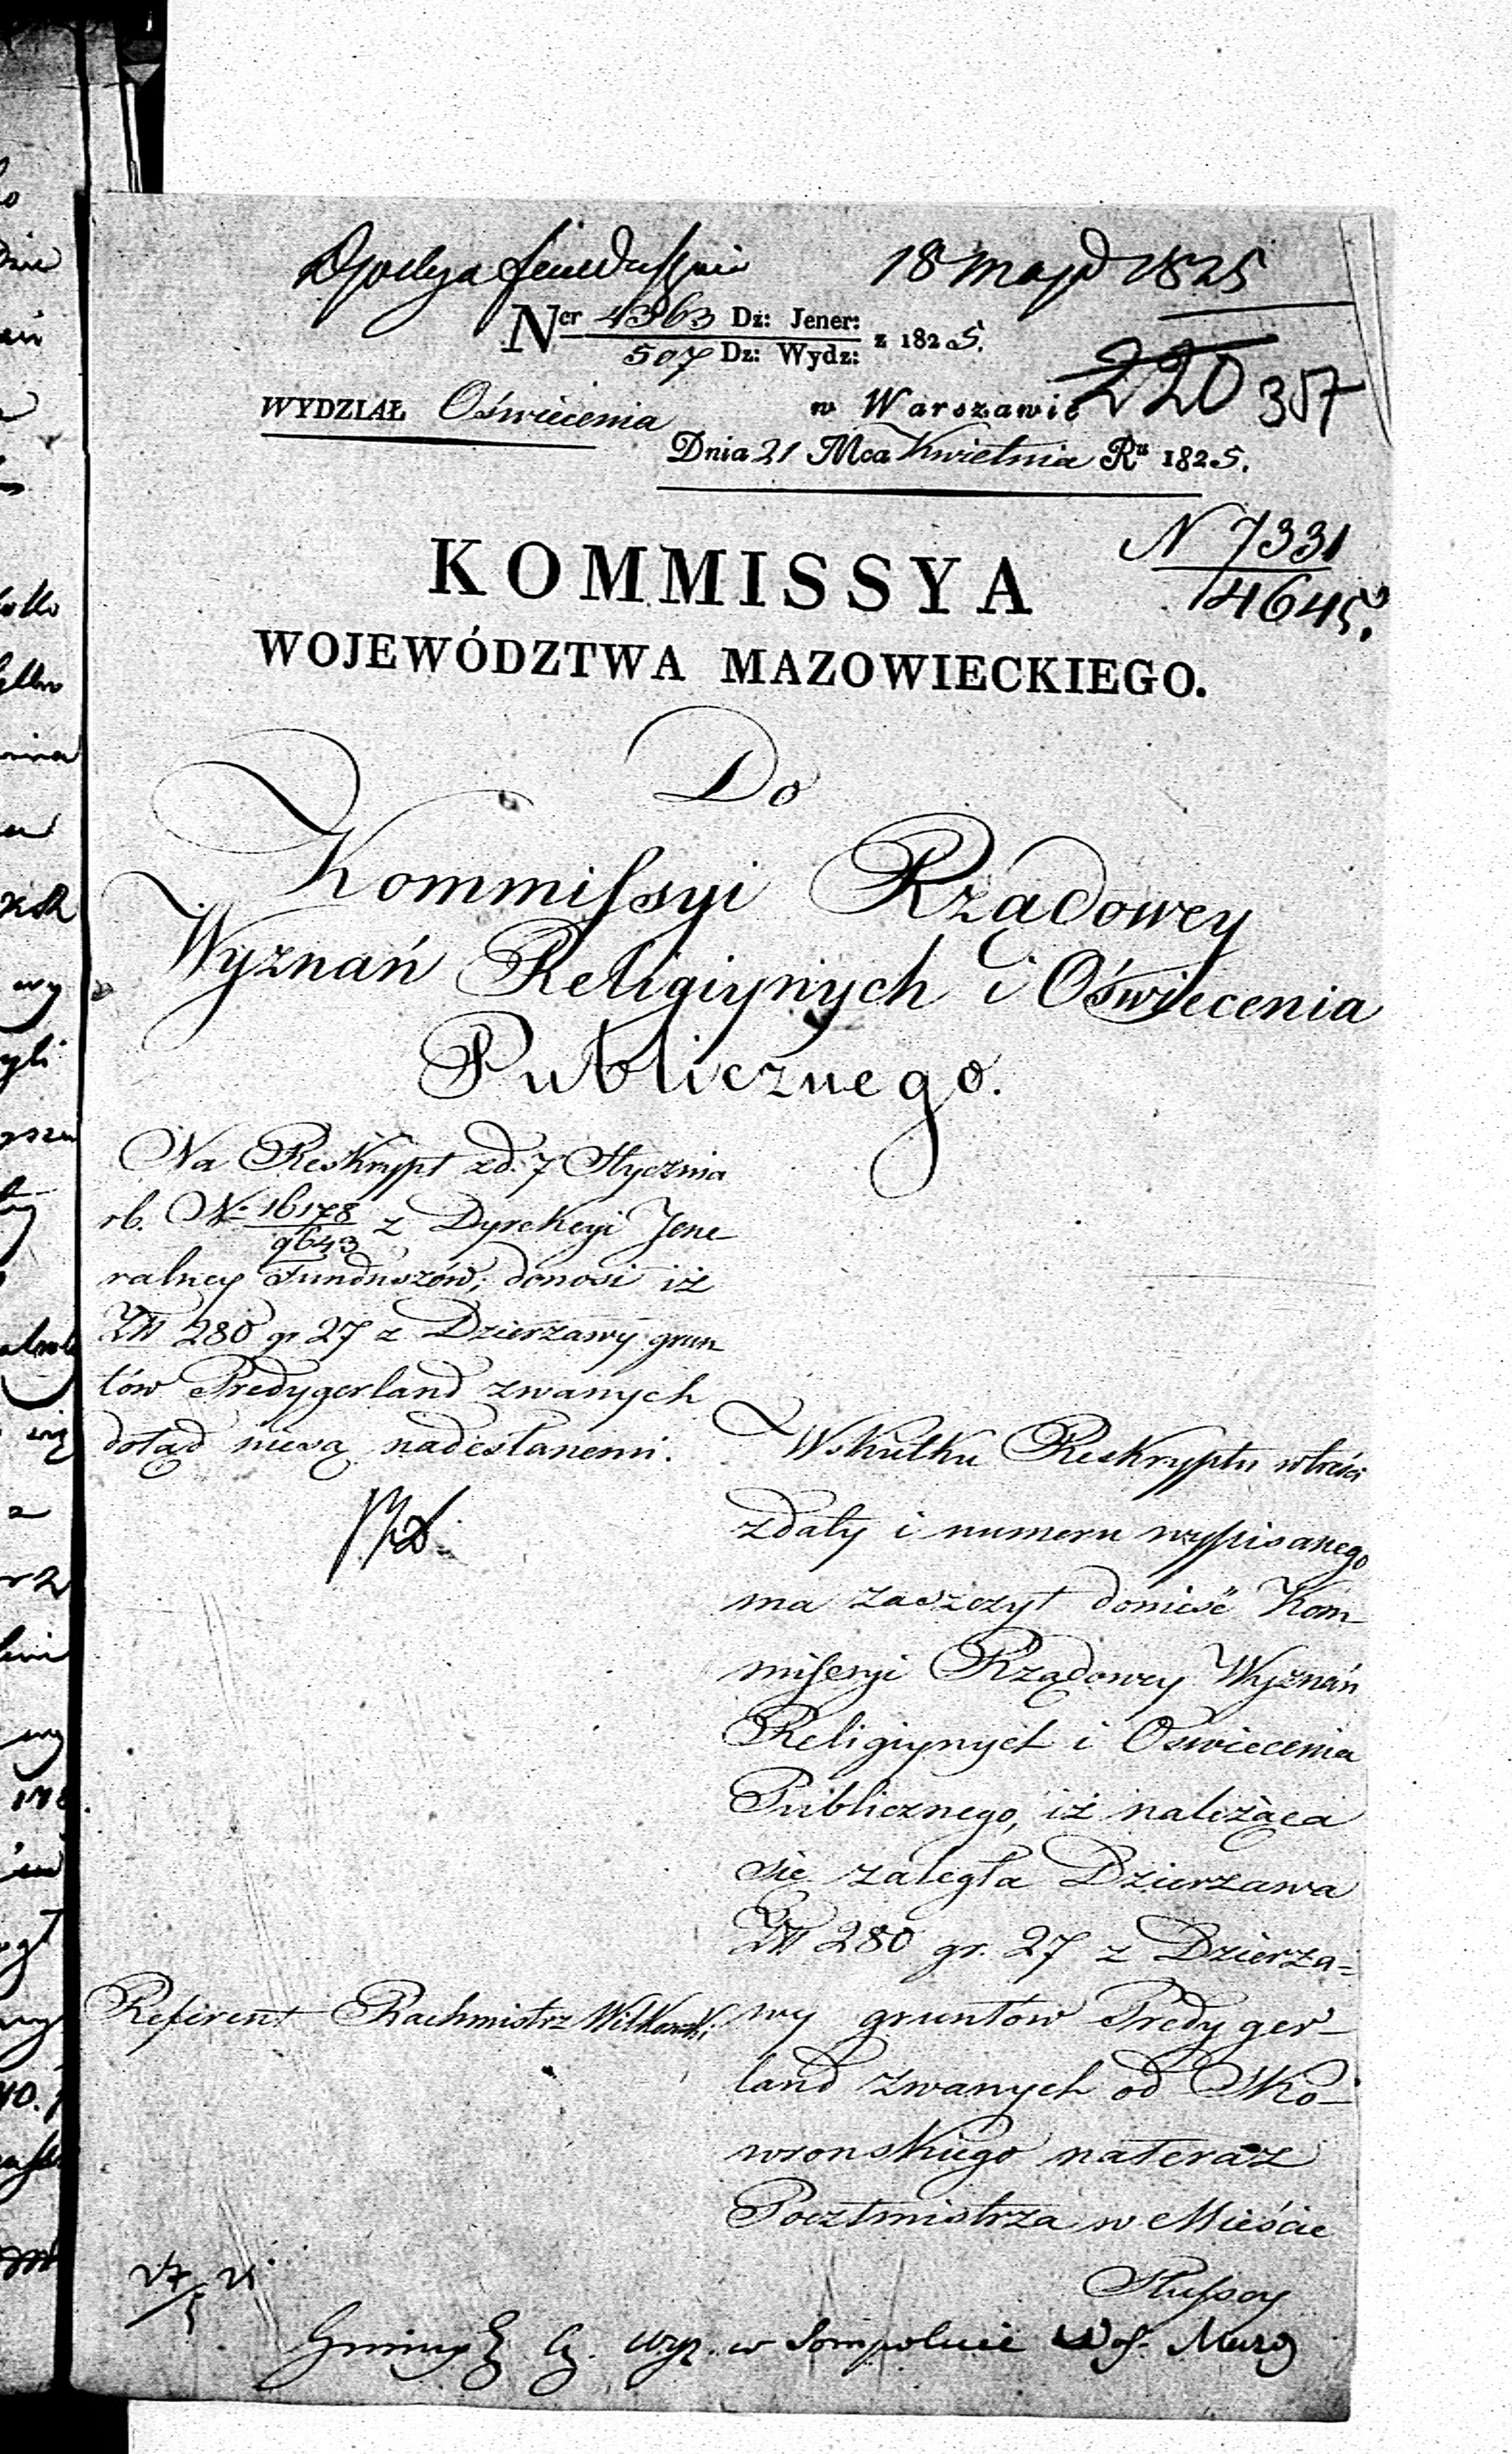 18 Maja 1825
Ner 4363 Dz: Jener:
507 Dz: Wydz: z 1825.
220 357
WYDZIAŁ Oświecenia w Warszawie
Dnia 21 Mca Kwietnia Ru 1825.
N 7331
4645.
KOMMISSYA
WOJEWÓDZTWA MAZOWIECKIEGO.
Do
Kommissyi Rządowey
Wyznań Religiynych i Oświecenia
Publicznego.
Na Reskrypt zd. 7 Stycznia
rb. No 16178 z Dyrekcyi Jene-
9643
ralney Funduszów, donosi iż
Zł 280 gr 27 z Dzierzawy grun
tów Predygerland zwanych
dotąd niesą nadesłanemi.
Wskutku Reskryptu
zdaty i numeru wypisanego
ma zaszczyt donieść Kom-
missyi Rządowey Wyznań
Religiynych i Oswiecenia
Publicznego, iż należąca
się zaległa Dzierzawa
Zł 280 gr. 27 z Dzierza-
Referent Rachmistrz Witkowski
wy gruntow Predyger-
land zwanych od Sko-
wronskiego nateraz
Pocztmistrza w Mieście
Słupcy
Gminy E. A. wyz. w Sompolnie Woj. Mazo